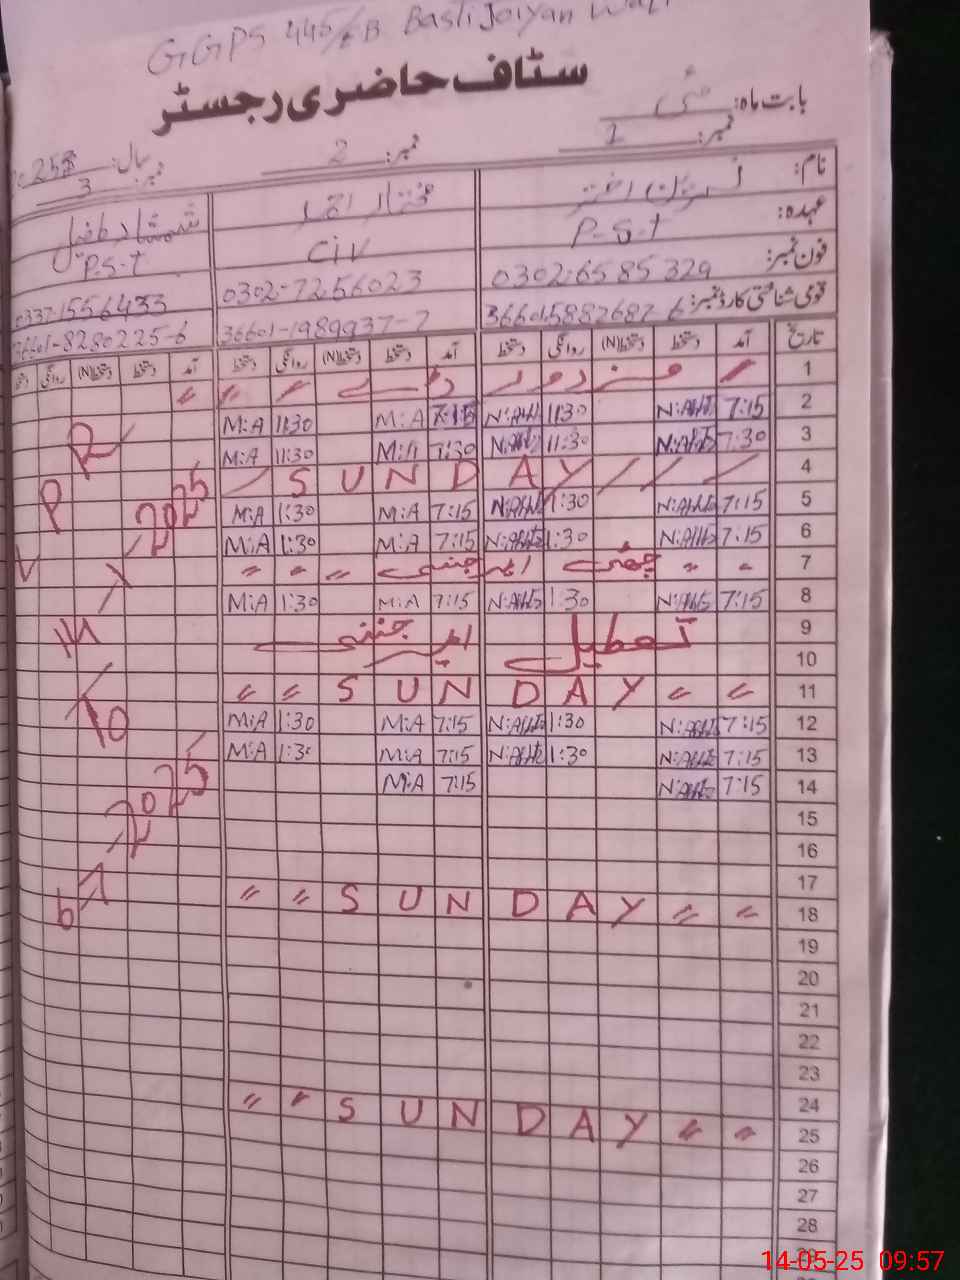 GGPS 445/EB Basti Joiyan Wali
سٹاف حاضری رجسٹر
بابت ماہ: مئی
نمبر: 1 نمبر: 2 سال: 25 نمبر: 3
نام: نسرین اختر مختار احمد شمشاد
عہدہ: P-S-T CiV P-S-T
فون نمبر: 0302-6585329 0302-7256023 0337-1556433
قومی شناختی کارڈ نمبر: 36601-1989937-7 36601-8280225-6
تاریخ آمد دستخط دستخط(N) روانگی دستخط آمد دستخط دستخط(N) روانگی دستخط آمد دستخط دستخط(N) روانگی
1 مزدور ڈے
2 7:15 11:30 7:15 M:A M:A 11:30
3 7:30 11:30 7:30 M:A 11:30 M:A
4 S U N D A Y
5 7:15 1:30 7:15 M:A 1:30 M:A
6 7:15 1:30 7:15 M:A 1:30 M:A
7 چھٹی ایمرجنسی
8 7:15 1:30 7:15 M:A 1:30 M:A
9 تعطیل ایمرجنسی
10
11 S U N D A Y
12 7:15 1:30 7:15 M:A 1:30 M:A
13 7:15 1:30 7:15 M:A 1:30 M:A
14 7:15 7:15 M:A
15
16
17
18 S U N D A Y
19
20
21
22
23
24
25 S U N D A Y
26
27
28
29
2025
2025
14-05-25 09:57